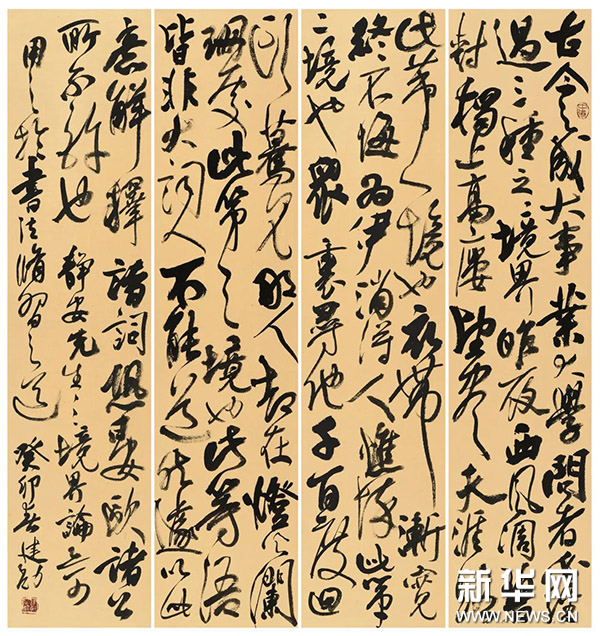 古今之成大事業大學問者
過三種之境界昨夜西風凋
樹獨上高樓望盡天涯
此第一境也衣帶漸寬
終不悔為伊消得人憔悴此第
二境也眾裏尋他千百度回
頭驀見那人却在燈火闌
珊處此第三境也此等語
皆非大詞人不能道然遽以此
意解釋諸詞恐晏歐諸公
所不許也 靜安先生三境界論亦可
用之於書法脩習之道 癸卯春建
新华网
WWW.NEWS.CN